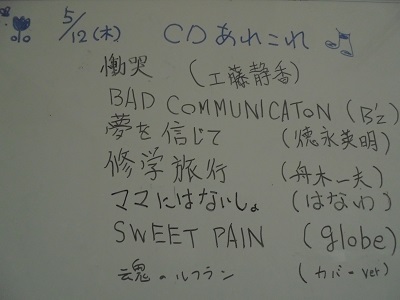 5/12(木) CDあれこれ
慟哭 (工藤静香)
BAD COMMUNICATON (B'z)
夢を信じて (徳永英明)
修学旅行 (舟木一夫)
ママにはないしょ (はなわ)
SWEET PAIN (globe)
魂のルフラン (カバーver)